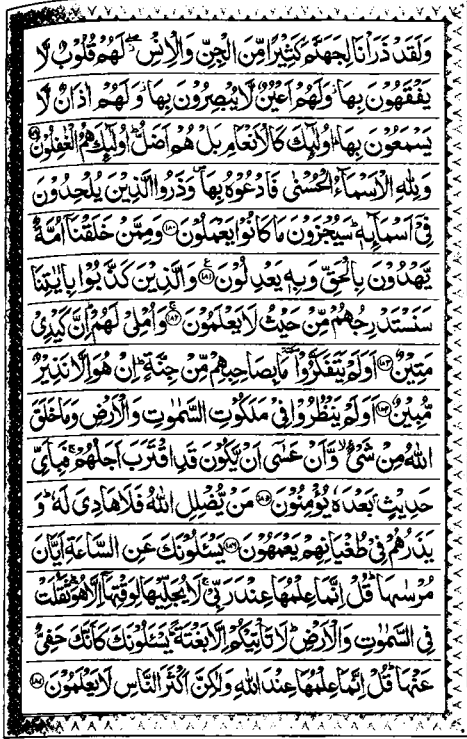 وَلَقَدْ ذَرَأْنَا لِجَهَنَّمَ كَثِيْرًا مِّنَ الْجِنِّ وَالْاِنْسِ ۖ لَهُمْ قُلُوْبٌ لَّا
يَفْقَهُوْنَ بِهَا ۫ وَلَهُمْ اَعْيُنٌ لَّا يُبْصِرُوْنَ بِهَا ۫ وَلَهُمْ اٰذَانٌ لَّا
يَسْمَعُوْنَ بِهَا ؕ اُولٰٓئِكَ كَالْاَنْعَامِ بَلْ هُمْ اَضَلُّ ؕ اُولٰٓئِكَ هُمُ الْغٰفِلُوْنَ ۝۱۷۹
وَلِلّٰهِ الْاَسْمَآءُ الْحُسْنٰى فَادْعُوْهُ بِهَا ۪ وَذَرُوا الَّذِيْنَ يُلْحِدُوْنَ
فِيْۤ اَسْمَآئِهٖ ؕ سَيُجْزَوْنَ مَا كَانُوْا يَعْمَلُوْنَ ۝۱۸۰ وَمِمَّنْ خَلَقْنَاۤ اُمَّةٌ
يَّهْدُوْنَ بِالْحَقِّ وَبِهٖ يَعْدِلُوْنَ ۝۱۸۱ وَالَّذِيْنَ كَذَّبُوْا بِاٰيٰتِنَا
سَنَسْتَدْرِجُهُمْ مِّنْ حَيْثُ لَا يَعْلَمُوْنَ ۝۱۸۲ وَاُمْلِيْ لَهُمْ ؕ اِنَّ كَيْدِيْ
مَتِيْنٌ ۝۱۸۳ اَوَلَمْ يَتَفَكَّرُوْا ٚ مَا بِصَاحِبِهِمْ مِّنْ جِنَّةٍ ؕ اِنْ هُوَ اِلَّا نَذِيْرٌ
مُّبِيْنٌ ۝۱۸۴ اَوَلَمْ يَنْظُرُوْا فِيْ مَلَكُوْتِ السَّمٰوٰتِ وَالْاَرْضِ وَمَا خَلَقَ
اللّٰهُ مِنْ شَيْءٍ ۙ وَّاَنْ عَسٰۤى اَنْ يَّكُوْنَ قَدِ اقْتَرَبَ اَجَلُهُمْ ۚ فَبِاَيِّ
حَدِيْثٍۭ بَعْدَهٗ يُؤْمِنُوْنَ ۝۱۸۵ مَنْ يُّضْلِلِ اللّٰهُ فَلَا هَادِيَ لَهٗ ؕ وَ
يَذَرُهُمْ فِيْ طُغْيَانِهِمْ يَعْمَهُوْنَ ۝۱۸۶ يَسْـَٔلُوْنَكَ عَنِ السَّاعَةِ اَيَّانَ
مُرْسٰىهَا ؕ قُلْ اِنَّمَا عِلْمُهَا عِنْدَ رَبِّيْ ۚ لَا يُجَلِّيْهَا لِوَقْتِهَاۤ اِلَّا هُوَ ؕ ثَقُلَتْ
فِي السَّمٰوٰتِ وَالْاَرْضِ ؕ لَا تَاْتِيْكُمْ اِلَّا بَغْتَةً ؕ يَسْـَٔلُوْنَكَ كَاَنَّكَ حَفِيٌّ
عَنْهَا ؕ قُلْ اِنَّمَا عِلْمُهَا عِنْدَ اللّٰهِ وَلٰكِنَّ اَكْثَرَ النَّاسِ لَا يَعْلَمُوْنَ ۝۱۸۷